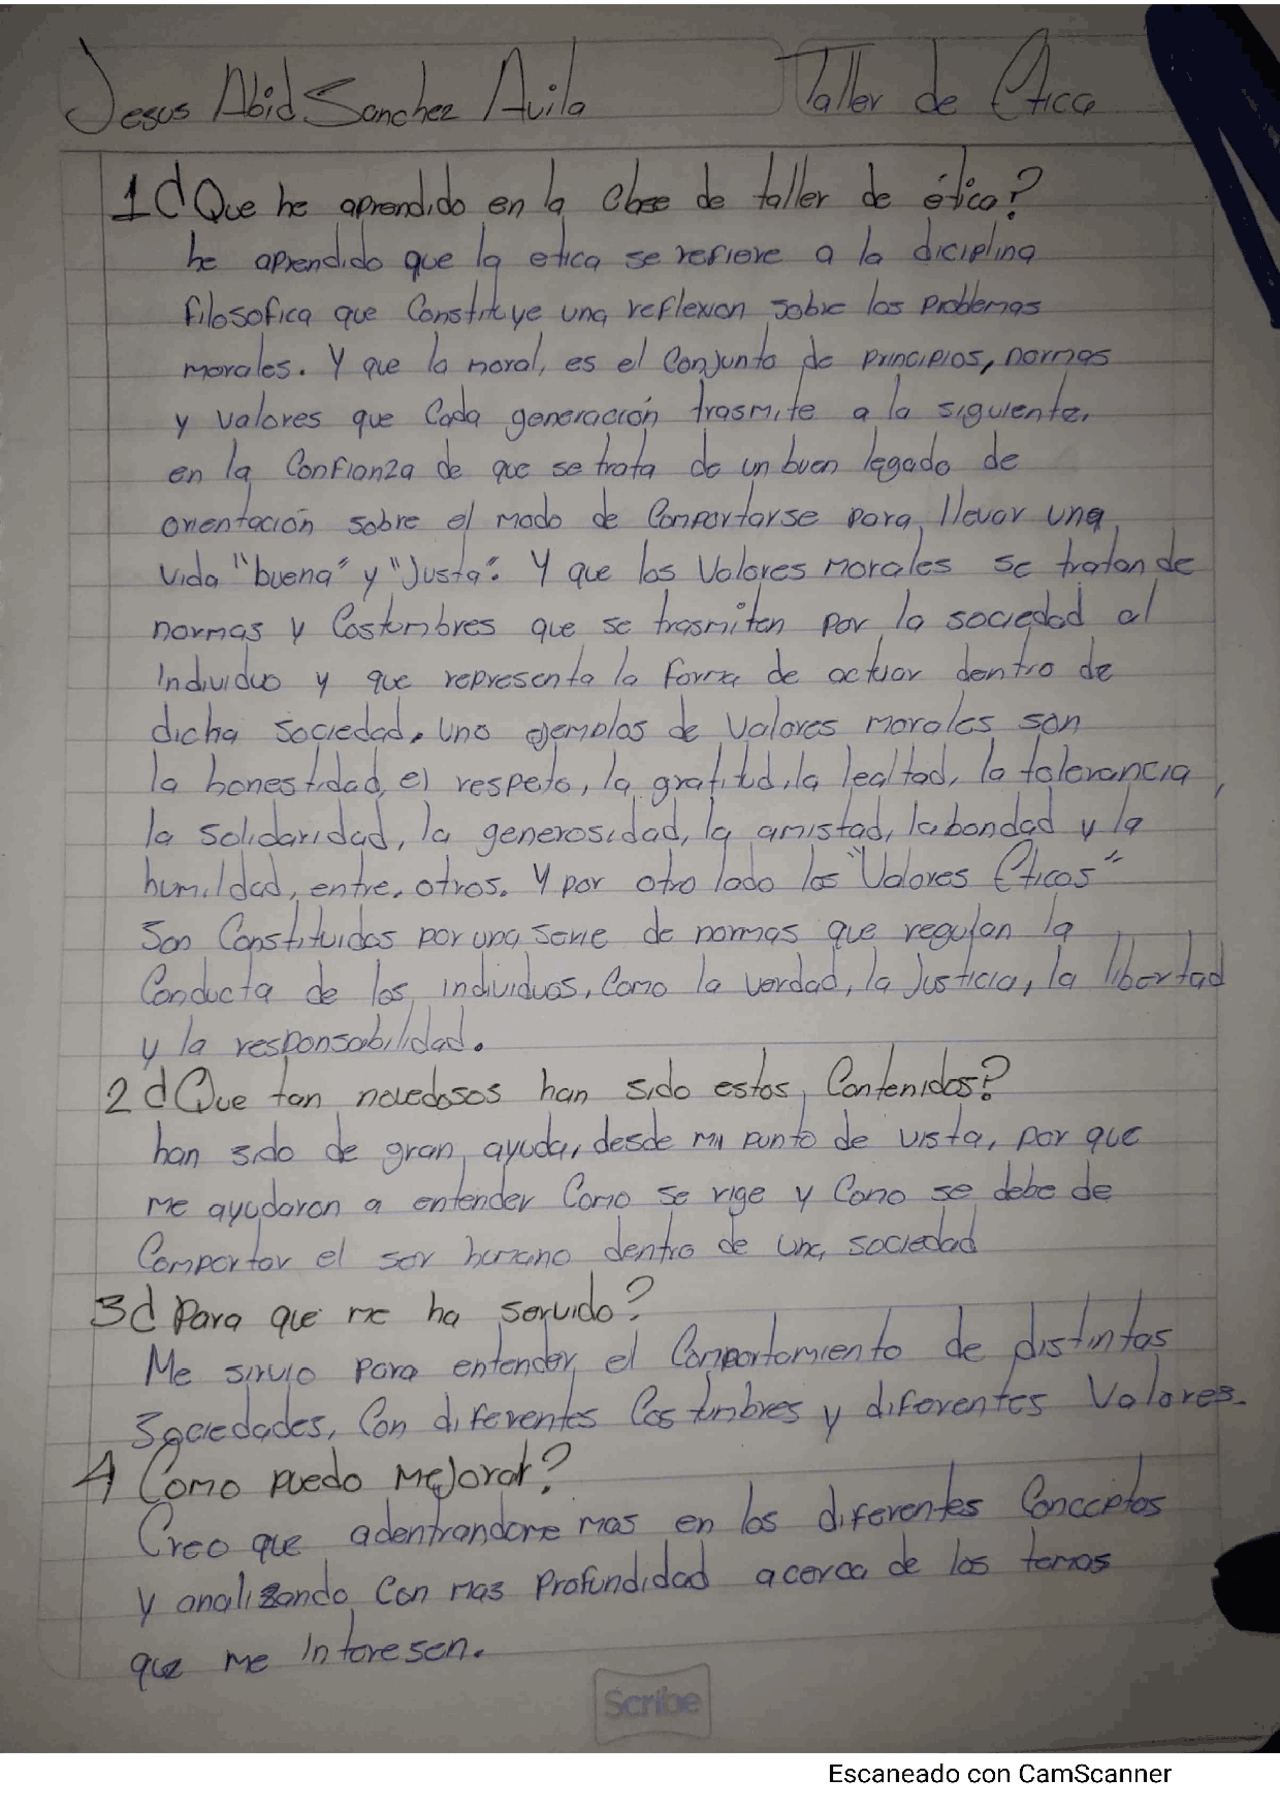 Jesus Abid Sanchez Avila Taller de Etica
1 ¿Que he aprendido en la clase de taller de ética?
he aprendido que la etica se refiere a la diciplina
filosofica que Constituye una reflexion sobre los problemas
morales. Y que la moral, es el Conjunto de principios, normas
y valores que Cada generación trasmite a la siguiente,
en la Confianza de que se trata de un buen legado de
orientación sobre el modo de Comportarse para llevar una
vida "buena" y "Justa". Y que los Valores morales se tratan de
normas y Costumbres que se trasmiten por la sociedad al
individuo y que representa la forma de actuar dentro de
dicha sociedad. Uno ejemplos de valores morales son
la honestidad, el respeto, la gratitud, la lealtad, la tolerancia,
la solidaridad, la generosidad, la amistad, la bondad y la
humildad, entre, otros. Y por otro lado los "Valores Éticos"
Son Constituidos por una serie de normas que regulan la
Conducta de los individuos, Como la verdad, la Justicia, la libertad
y la responsabilidad.
2 ¿Que tan novedosos han sido estos Contenidos?
han sido de gran ayuda, desde mi punto de vista, por que
me ayudaron a entender Como se rige y Como se debe de
Comportar el ser humano dentro de una sociedad
3 ¿Para que me ha servido?
Me sirvio para entender el Comportamiento de distintas
Sociedades, Con diferentes Costumbres y diferentes Valores.
4 Como puedo Mejorar?
Creo que adentrandome mas en los diferentes Conceptos
y analizando Con mas Profundidad acerca de los temas
que me Interesen.
Scribe
Escaneado con CamScanner